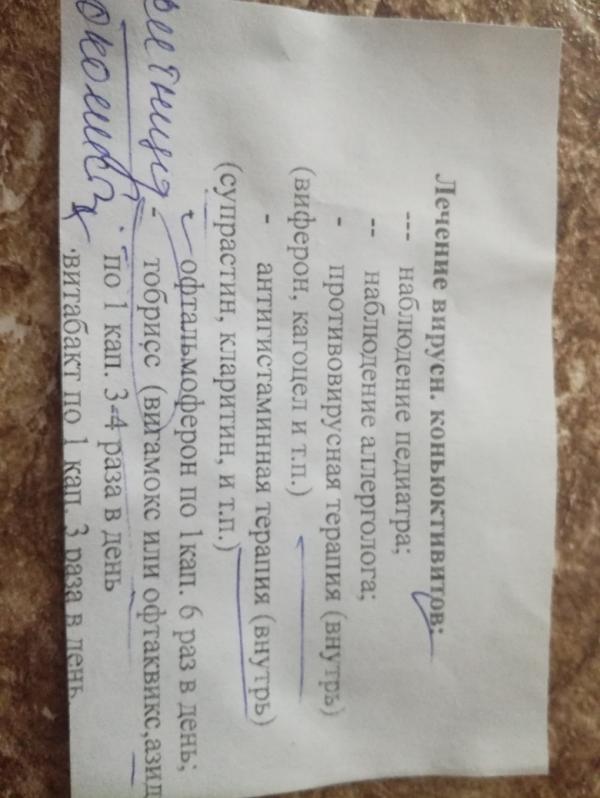 Лечение вирусн. коньюктивитов:
--- наблюдение педиатра;
-- наблюдение аллерголога;
- противовирусная терапия (внутрь)
(виферон, кагоцел и т.п.)
- антигистаминная терапия (внутрь)
(супрастин, кларитин, и т.п.)
офтальмоферон по 1кап. 6 раз в день;
- тобрисс (вигамокс или офтаквикс,азид
по 1 кап. 3-4 раза в день
витабакт по 1 кап. 3 раза в день